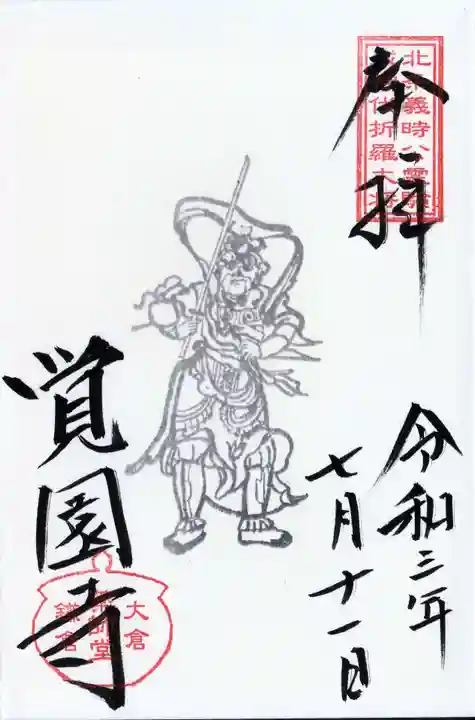 奉拝
北条義時公霊験
伐折羅大将
令和三年
七月十一日
覚園寺
大倉
薬師堂
鎌倉